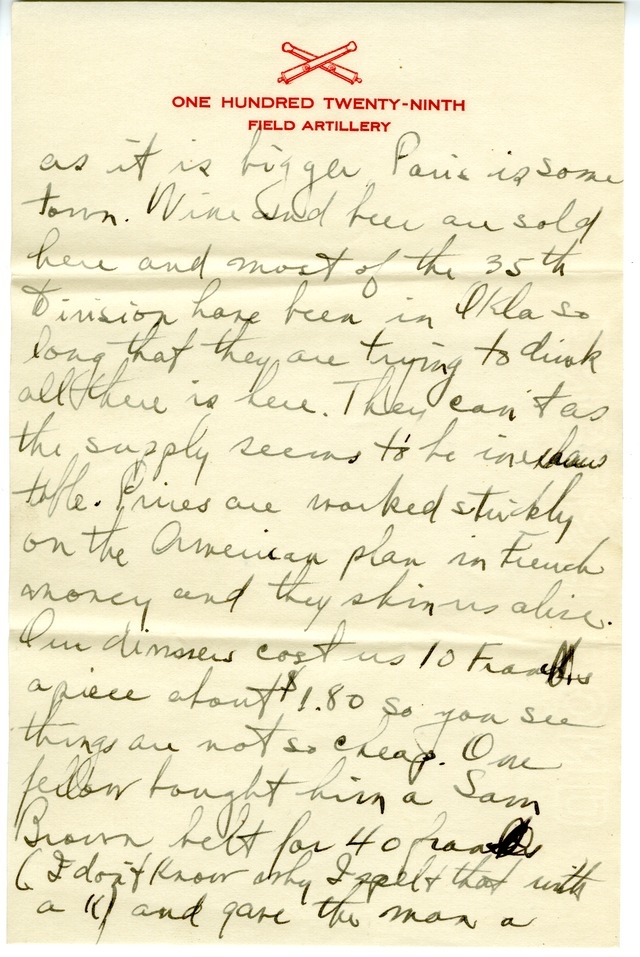 ONE HUNDRED TWENTY-NINTH
FIELD ARTILLERY
as it is bigger. Paris is some
town. Wine and beer are sold
here and most of the 35th
Division have been in Okla so
long that they are trying to drink
all there is here. They can't as
the supply seems to be inexhaus
table. Prices are marked strickly
on the American plan in French
money and they skin us alive.
Our dinners cost us 10 Francs
apiece about $1.80 so you see
things are not so cheap. One
fellow bought him a Sam
Brown belt for 40 francs
(I don't know why I spelt that with
a K) and gave the man a